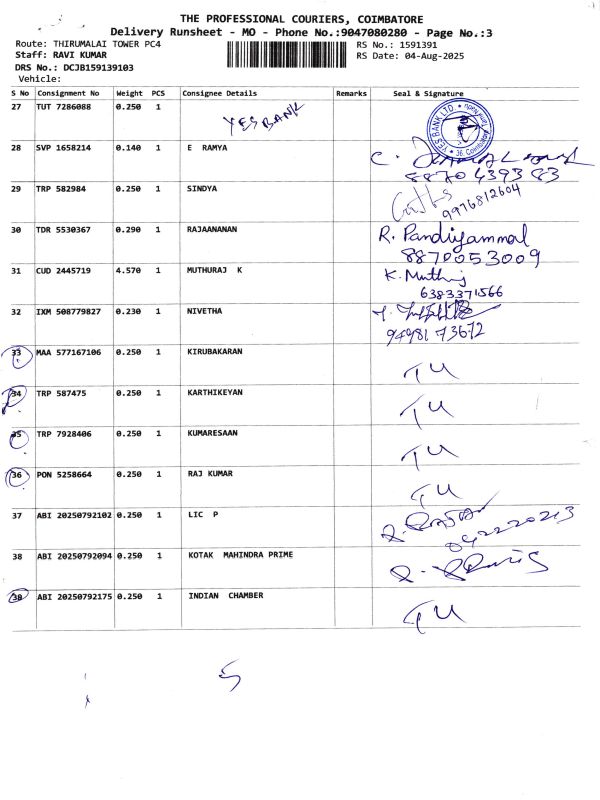 THE PROFESSIONAL COURIERS, COIMBATORE
Delivery Runsheet - MO - Phone No.:9047080280 - Page No.:3
Route: THIRUMALAI TOWER PC4
RS No.: 1591391
Staff: RAVI KUMAR
RS Date: 04-Aug-2025
DRS No.: DCJB159139103
Vehicle:
S No Consignment No Weight PCS Consignee Details Remarks Seal & Signature
27 TUT 7286088 0.250 1 YES BANK
YES BANK LTD. Coimbatore
28 SVP 1658214 0.140 1 E RAMYA
8870439383
29 TRP 582984 0.250 1 SINDYA
9976812604
30 TDR 5530367 0.290 1 RAJAANANAN R. Pandiyammal
8870053009
31 CUD 2445719 4.570 1 MUTHURAJ K K. Muthuraj
6383371566
32 IXM 508779827 0.230 1 NIVETHA
9498173672
33 MAA 577167106 0.250 1 KIRUBAKARAN TU
34 TRP 587475 0.250 1 KARTHIKEYAN TU
35 TRP 7928406 0.250 1 KUMARESAAN TU
36 PON 5258664 0.250 1 RAJ KUMAR TU
37 ABI 20250792102 0.250 1 LIC P
0422220213
38 ABI 20250792094 0.250 1 KOTAK MAHINDRA PRIME
39 ABI 20250792175 0.250 1 INDIAN CHAMBER TU
5